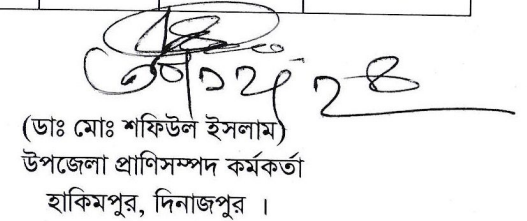 (ডাঃ মোঃ শফিউল ইসলাম)
উপজেলা প্রাণিসম্পদ কর্মকর্তা
হাকিমপুর, দিনাজপুর ।